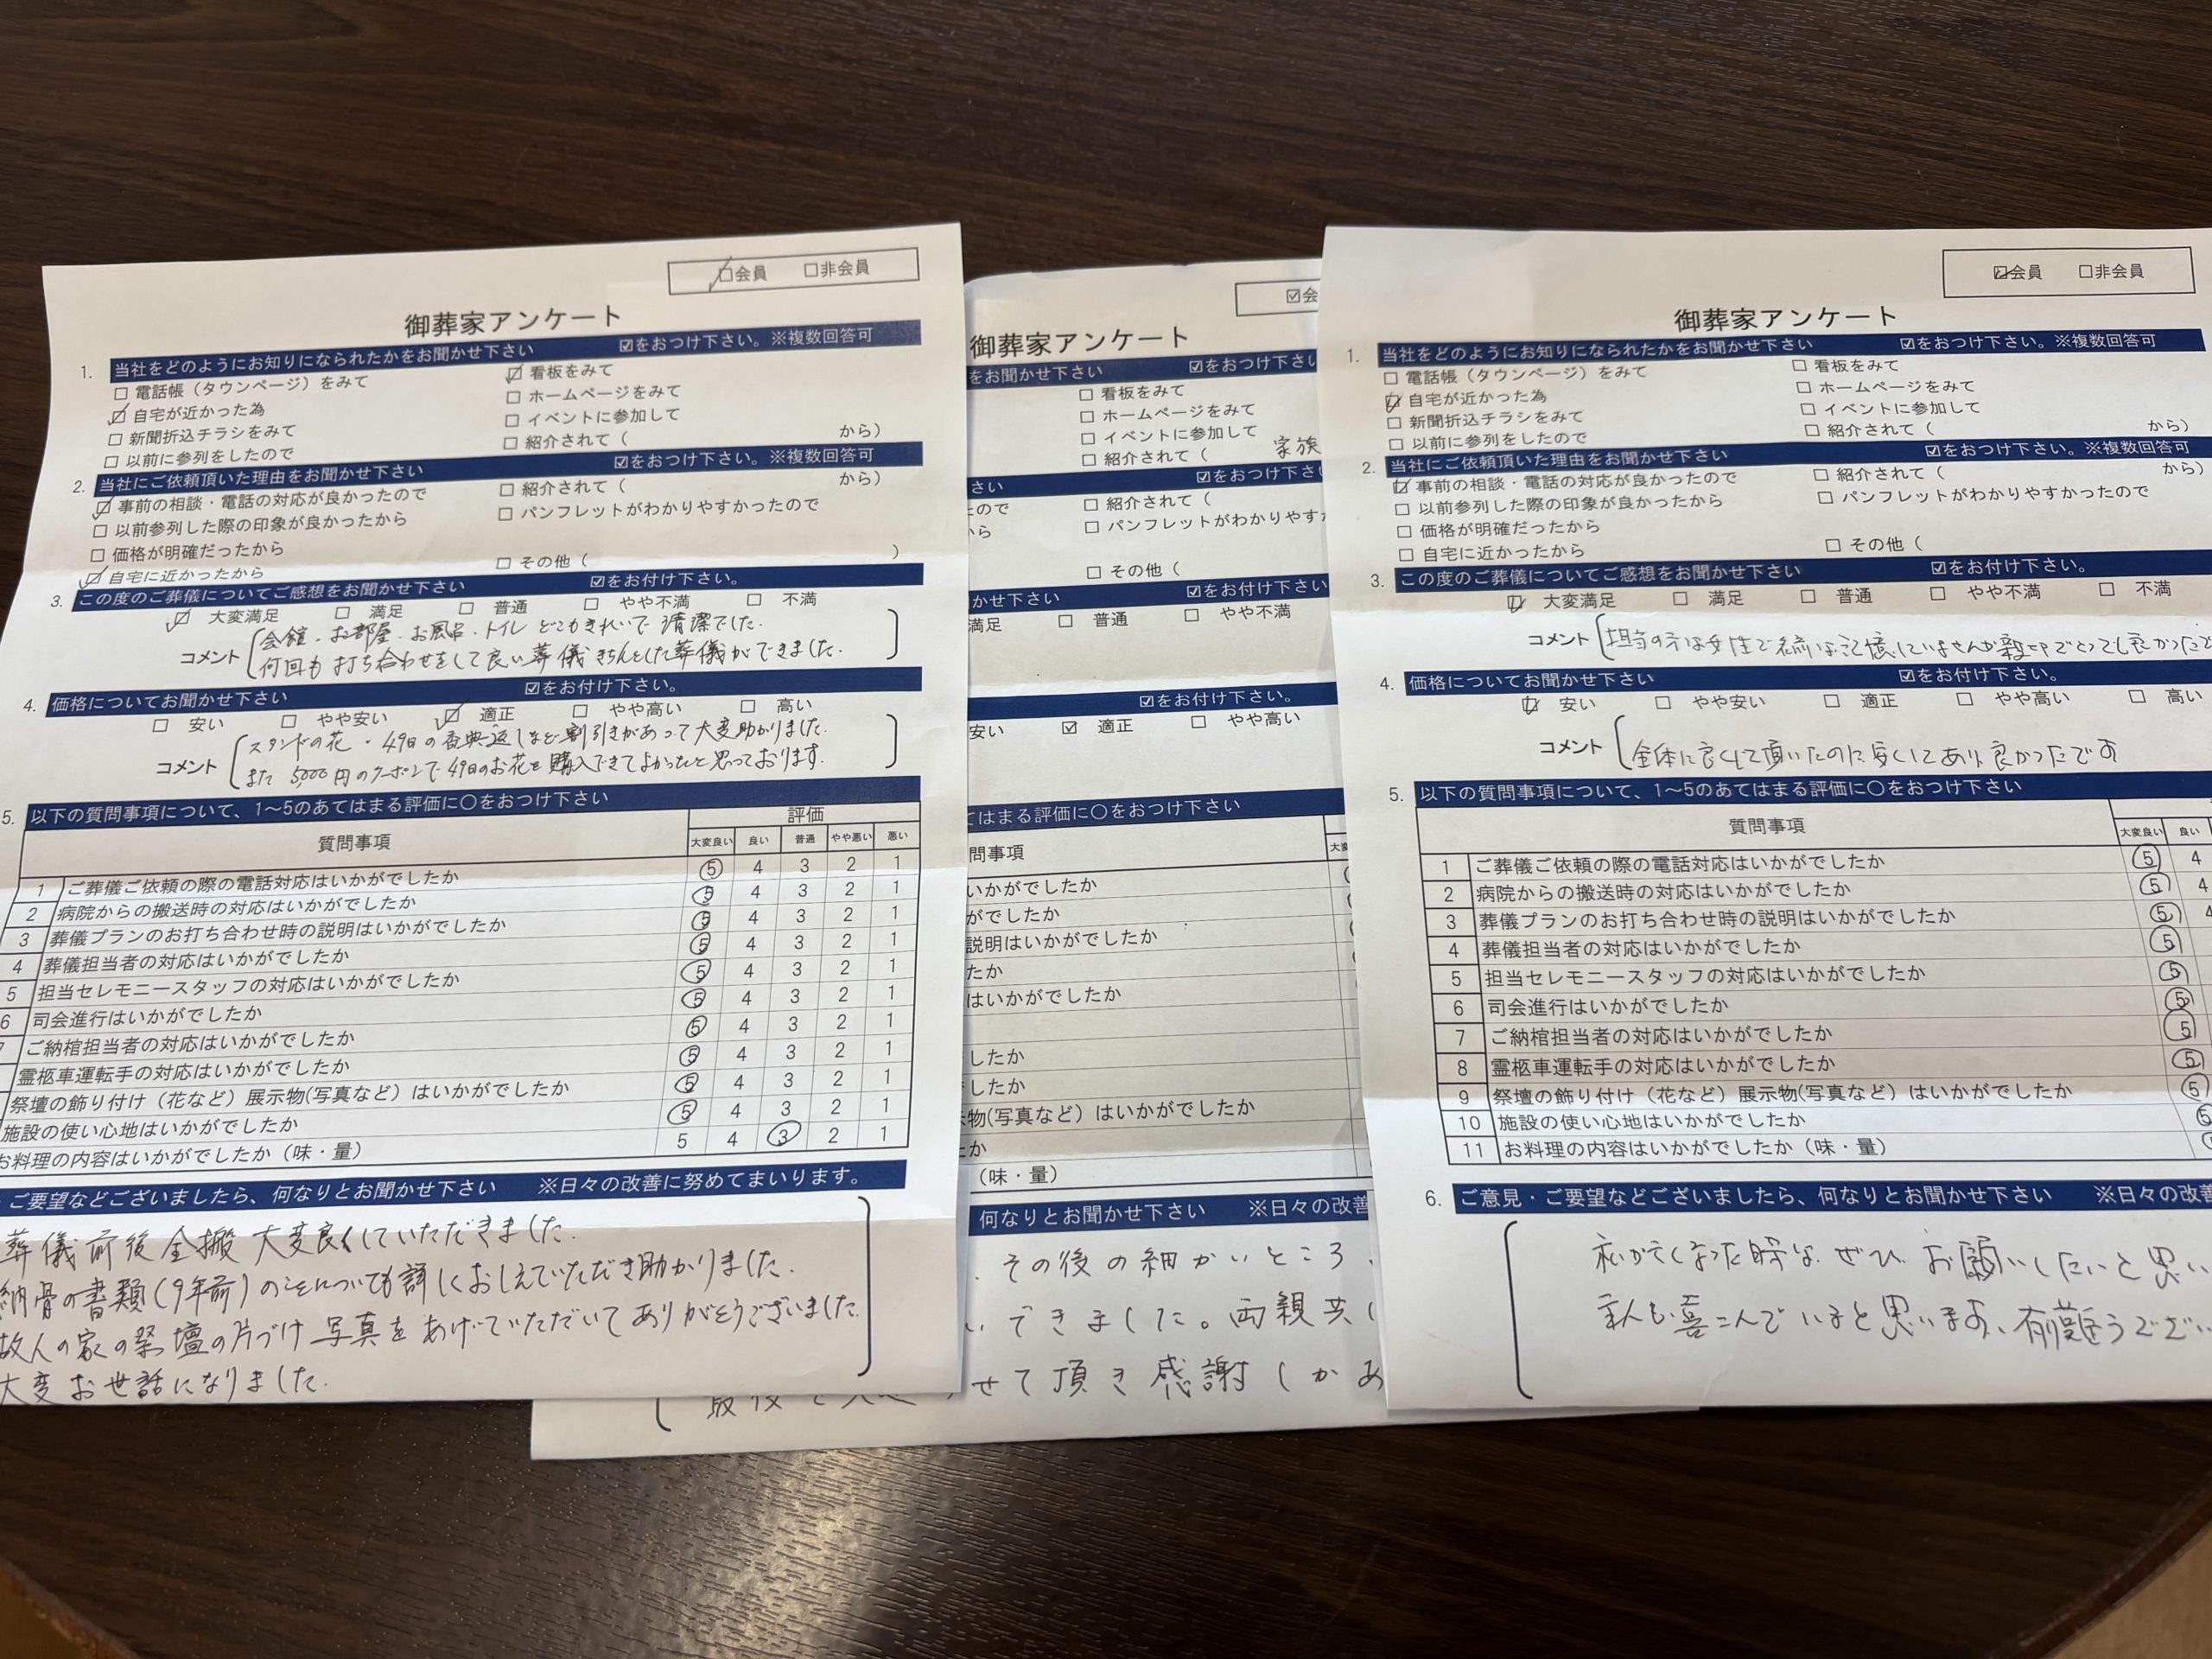 ☑会員 □非会員
御葬家アンケート
1. 当社をどのようにお知りになられたかをお聞かせ下さい ☑をおつけ下さい。※複数回答可
□ 電話帳（タウンページ）をみて ☑ 看板をみて
☑ 自宅が近かった為 □ ホームページをみて
□ 新聞折込チラシをみて □ イベントに参加して
□ 以前に参列をしたので □ 紹介されて（ から）
2. 当社にご依頼頂いた理由をお聞かせ下さい ☑をおつけ下さい。※複数回答可
☑ 事前の相談・電話の対応が良かったので □ 紹介されて（ から）
□ 以前参列した際の印象が良かったから □ パンフレットがわかりやすかったので
□ 価格が明確だったから
☑ 自宅に近かったから □ その他（ ）
3. この度のご葬儀についてご感想をお聞かせ下さい ☑をお付け下さい。
☑ 大変満足 □ 満足 □ 普通 □ やや不満 □ 不満
コメント
会館．お部屋．お風呂．トイレ どこもきれいで 清潔でした．
何回も打ち合わせをして良い葬儀きちんとした葬儀ができました．
4. 価格についてお聞かせ下さい ☑をお付け下さい。
□ 安い □ やや安い ☑ 適正 □ やや高い □ 高い
コメント
スタンドの花・49日の香典返しなど割引きがあって大変助かりました．
また 5,000円のクーポンで49日のお花を購入できてよかったと思っております．
5. 以下の質問事項について、1～5のあてはまる評価に〇をおつけ下さい
質問事項 評価
大変良い 良い 普通 やや悪い 悪い
1 ご葬儀ご依頼の際の電話対応はいかがでしたか ⑤ 4 3 2 1
2 病院からの搬送時の対応はいかがでしたか ⑤ 4 3 2 1
3 葬儀プランのお打ち合わせ時の説明はいかがでしたか ⑤ 4 3 2 1
4 葬儀担当者の対応はいかがでしたか ⑤ 4 3 2 1
5 担当セレモニースタッフの対応はいかがでしたか ⑤ 4 3 2 1
6 司会進行はいかがでしたか ⑤ 4 3 2 1
ご納棺担当者の対応はいかがでしたか ⑤ 4 3 2 1
霊柩車運転手の対応はいかがでしたか ⑤ 4 3 2 1
祭壇の飾り付け（花など）展示物(写真など）はいかがでしたか ⑤ 4 3 2 1
施設の使い心地はいかがでしたか ⑤ 4 3 2 1
お料理の内容はいかがでしたか（味・量） 5 4 ③ 2 1
・ご要望などございましたら、何なりとお聞かせ下さい ※日々の改善に努めてまいります。
葬儀前後全搬大変良くしていただきました．
納骨の書類（9年前）のことについても詳しくおしえていただき助かりました．
故人の家の祭壇の片づけ写真をあげていただいてありがとうございました．
大変お世話になりました．
☑会
御葬家アンケート
をお聞かせ下さい ☑をおつけ下さい
□ 看板をみて
□ ホームページをみて
□ イベントに参加して
□ 紹介されて（ 家族
さい ☑をおつけ下さい
たので □ 紹介されて（
から □ パンフレットがわかりやす
□ その他（
かせ下さい ☑をお付け下さい
満足 □ 普通 □ やや不満
☑をお付け下さい。
安い ☑ 適正 □ やや高い
てはまる評価に〇をおつけ下さい
問事項
いかがでしたか
がでしたか
説明はいかがでしたか
たか
はいかがでしたか
したか
したか
示物(写真など）はいかがでしたか
たか
（味・量）
何なりとお聞かせ下さい ※日々の改善
その後の細かいところ
できました。両親共
せて頂き感謝しかあ
☑会員 □非会員
御葬家アンケート
1. 当社をどのようにお知りになられたかをお聞かせ下さい ☑をおつけ下さい。※複数回答可
□ 電話帳（タウンページ）をみて □ 看板をみて
☑ 自宅が近かった為 □ ホームページをみて
□ 新聞折込チラシをみて □ イベントに参加して
□ 以前に参列をしたので □ 紹介されて（ から）
2. 当社にご依頼頂いた理由をお聞かせ下さい ☑をおつけ下さい。※複数回答可
☑ 事前の相談・電話の対応が良かったので □ 紹介されて（ から）
□ 以前参列した際の印象が良かったから □ パンフレットがわかりやすかったので
□ 価格が明確だったから
□ 自宅に近かったから □ その他（
3. この度のご葬儀についてご感想をお聞かせ下さい ☑をお付け下さい。
☑ 大変満足 □ 満足 □ 普通 □ やや不満 □ 不満
コメント 担当の方は女性で名前は記憶していませんが親切でとても良かったで
4. 価格についてお聞かせ下さい ☑をお付け下さい。
☑ 安い □ やや安い □ 適正 □ やや高い □ 高い
コメント 全体に良くして頂いたのに安くしてあり良かったです
5. 以下の質問事項について、1～5のあてはまる評価に〇をおつけ下さい
質問事項
大変良い 良い
1 ご葬儀ご依頼の際の電話対応はいかがでしたか ⑤ 4
2 病院からの搬送時の対応はいかがでしたか ⑤ 4
3 葬儀プランのお打ち合わせ時の説明はいかがでしたか ⑤ 4
4 葬儀担当者の対応はいかがでしたか ⑤
5 担当セレモニースタッフの対応はいかがでしたか ⑤
6 司会進行はいかがでしたか ⑤
7 ご納棺担当者の対応はいかがでしたか ⑤
8 霊柩車運転手の対応はいかがでしたか ⑤
9 祭壇の飾り付け（花など）展示物(写真など）はいかがでしたか ⑤
10 施設の使い心地はいかがでしたか ⑤
11 お料理の内容はいかがでしたか（味・量）
6. ご意見・ご要望などございましたら、何なりとお聞かせ下さい ※日々の改
私が亡くなった時は、ぜひ、お願いしたいと思い
主人も喜こんでいると思います、有難うござい